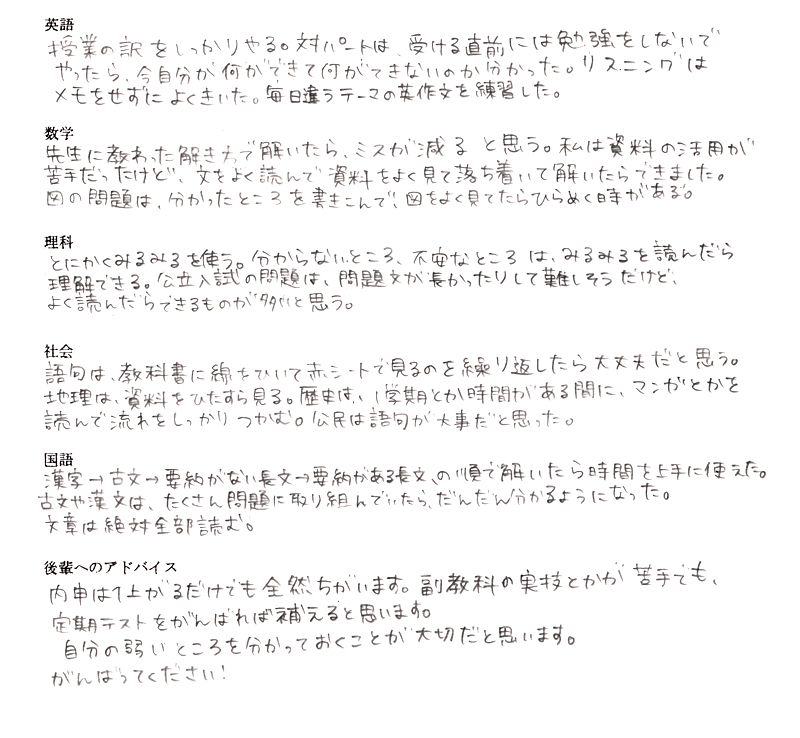 英語
授業の訳をしっかりやる。対パートは、受ける直前には勉強をしないで
やったら、今自分が何ができて何ができないのか分かった。リスニングは
メモをせずによくきいた。毎日違うテーマの英作文を練習した。
数学
先生に教わった解き方で解いたら、ミスが減ると思う。私は資料の活用が
苦手だったけど、文をよく読んで資料をよく見て落ち着いて解いたらできました。
図の問題は、分かったところを書きこんで、図をよく見てたらひらめく時がある。
理科
とにかくみるみるを使う。分からないところ、不安なところは、みるみるを読んだら
理解できる。公立入試の問題は、問題文が長かったりして難しそうだけど、
よく読んだらできるものが多いと思う。
社会
語句は、教科書に線をひいて赤シートで見るのを繰り返したら大丈夫だと思う。
地理は、資料をひたすら見る。歴史は、1学期とか時間がある間に、マンガとかを
読んで流れをしっかりつかむ。公民は語句が大事だと思った。
国語
漢字→古文→要約がない長文→要約がある長文、の順で解いたら時間を上手に使えた。
古文や漢文は、たくさん問題に取り組んでいたら、だんだん分かるようになった。
文章は絶対全部読む。
後輩へのアドバイス
内申は1上がるだけでも全然ちがいます。副教科の実技とかが苦手でも、
定期テストをがんばれば補えると思います。
自分の弱いところを分かっておくことが大切だと思います。
がんばってください!